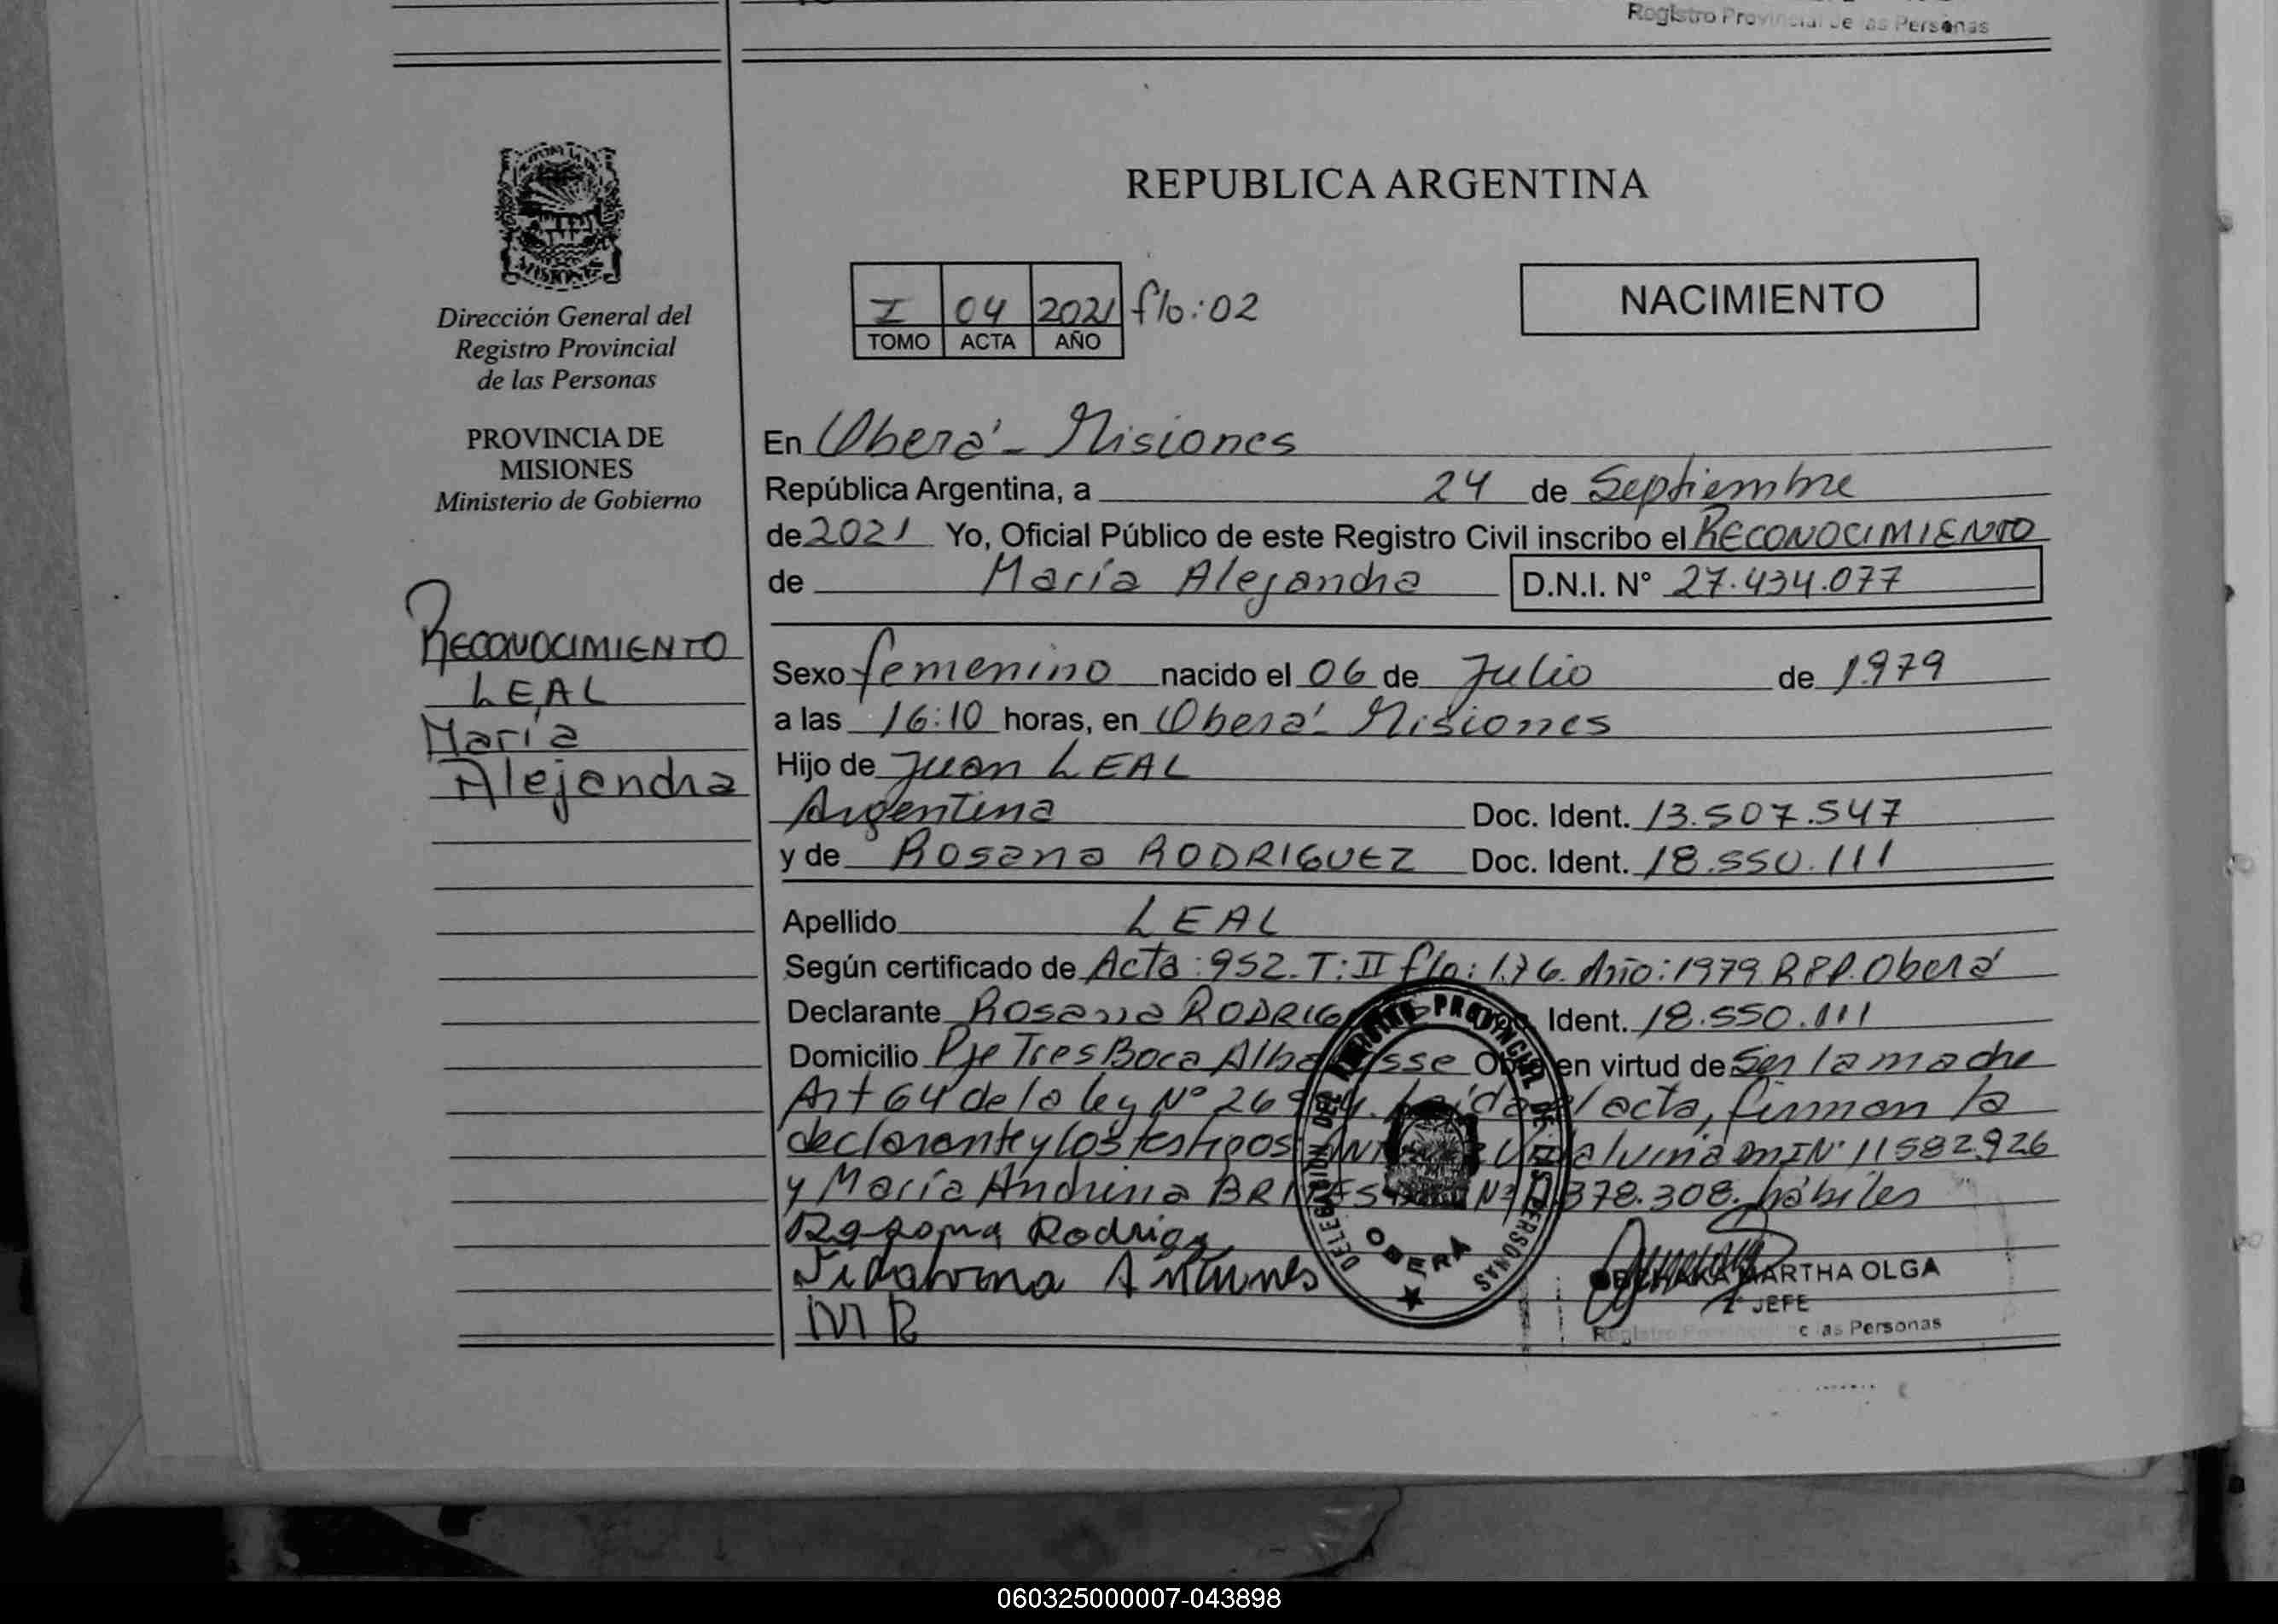 Registro Provincial de las Personas
REPUBLICA ARGENTINA
MISIONES
Dirección General del
Registro Provincial
de las Personas
PROVINCIA DE
MISIONES
Ministerio de Gobierno
I 04 2021 flo:02
TOMO ACTA AÑO
NACIMIENTO
En Oberá - Misiones
República Argentina, a 24 de Septiembre
de 2021 Yo, Oficial Público de este Registro Civil inscribo el RECONOCIMIENTO
de María Alejandra D.N.I. N° 27.434.077
RECONOCIMIENTO
LEAL
María
Alejandra
Sexo femenino nacido el 06 de Julio de 1979
a las 16:10 horas, en Oberá - Misiones
Hijo de Juan LEAL
Argentina Doc. Ident. 13.507.547
y de Rosana RODRIGUEZ Doc. Ident. 18.550.111
Apellido LEAL
Según certificado de Acta: 952. T: II flo: 176. Año: 1979 RPP. Oberá
Declarante Rosana RODRIG Ident. 18.550.111
Domicilio Pje Tres Boca en virtud de Ser la madre
Art 64 de la ley N° acta, firman la
declarante y los testigos 11582926
y María Andrina 378.308. hábiles
Rosana Rodrigu
Antunes
MR
DELEGACION DEL REGISTRO PROVINCIAL DE LAS PERSONAS
OBERA
MARTHA OLGA
JEFE
Registro las Personas
060325000007-043898